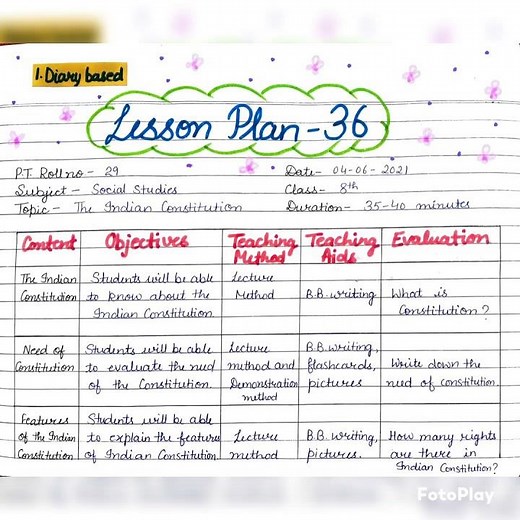 1. Diary based
Lesson Plan - 36
P.T. Roll no - 29
Date - 04-06-2021
Subject - Social Studies
Class - 8th
Topic - The Indian Constitution
Duration - 35-40 minutes
Content
Objectives
Teaching
Method
Teaching
Aids
Evaluation
The Indian
Constitution
Students will be able
to know about the
Indian Constitution.
Lecture
Method
B.B. writing
What is
Constitution?
Need of
Constitution
Students will be able
to evaluate the need
of the Constitution.
Lecture
method and
Demonstration
method
B.B. writing,
flashcards,
pictures
Write down the
need of constitution.
Features
of the Indian
Constitution
Students will be able
to explain the features
of Indian Constitution.
Lecture
method
B.B. writing,
pictures.
How many rights
are there in
Indian Constitution?
FotoPlay